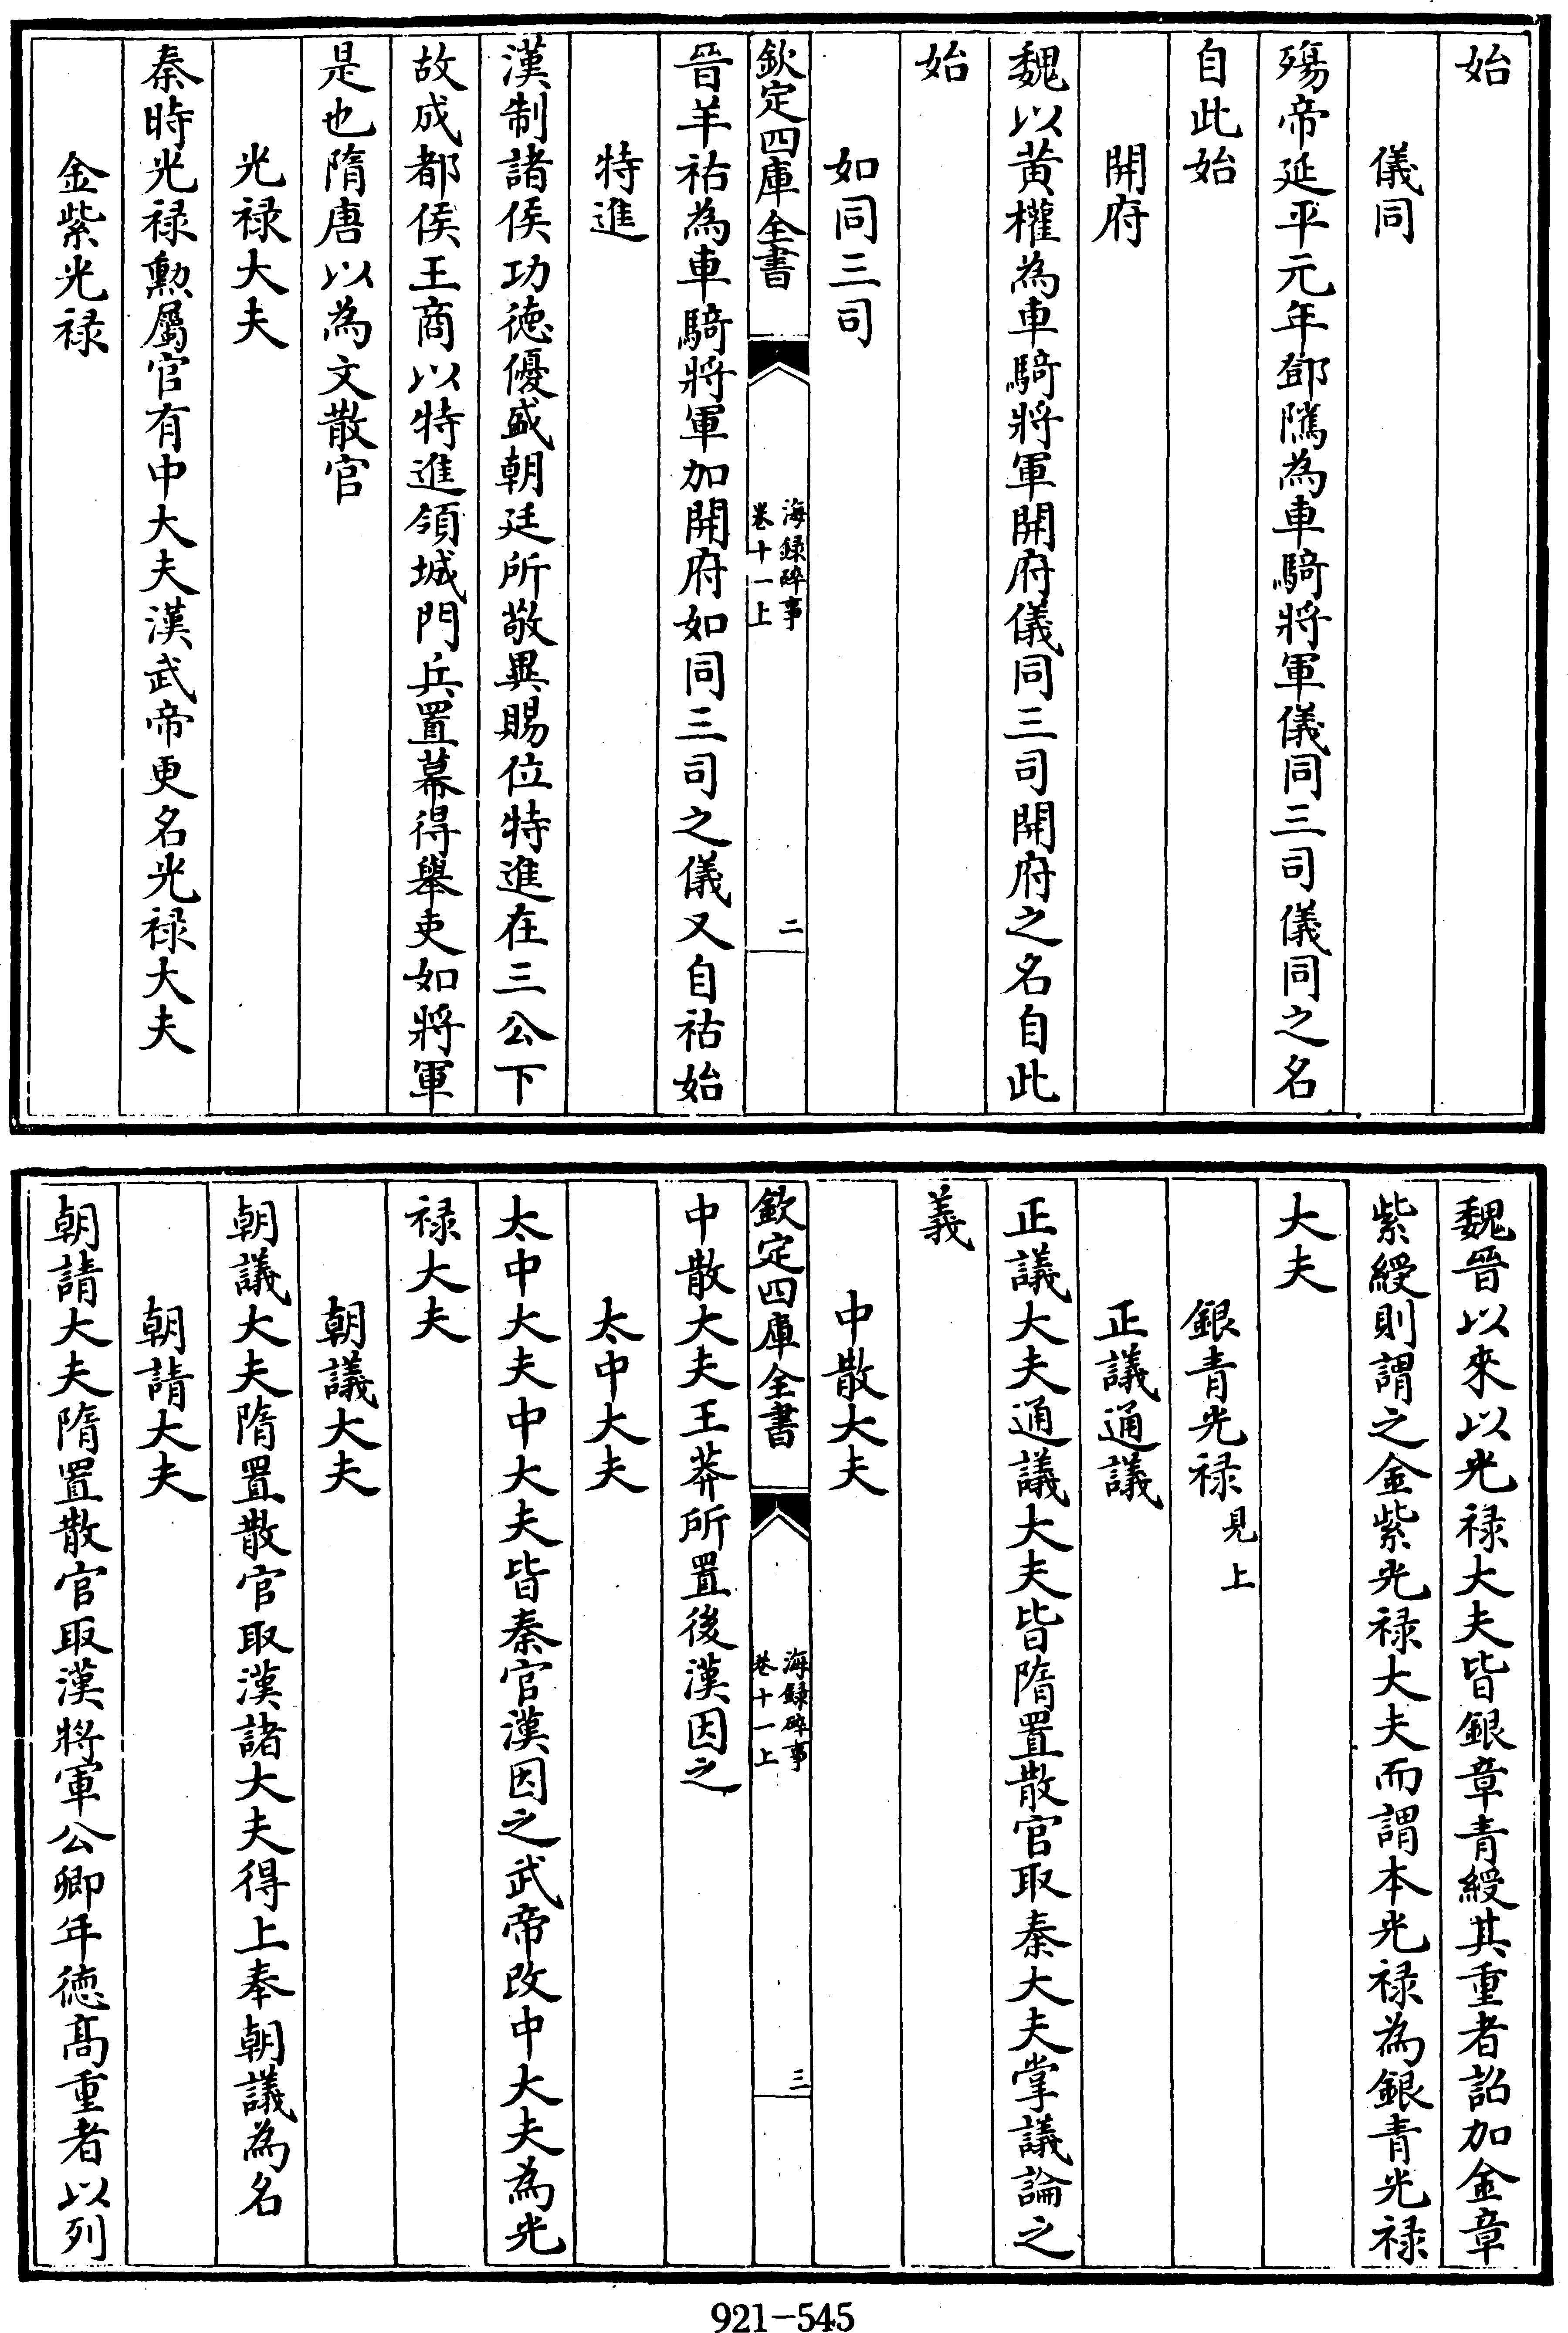 始
儀同
殤帝延平元年鄧隲為車騎將軍儀同三司儀同之名
自此始
開府
魏以黄權為車騎將軍開府儀同三司開府之名自此
始
如同三司
欽定四庫全書
海録碎事
卷十一上
二
晉羊祜為車騎將軍加開府如同三司之儀又自祜始
特進
漢制諸侯功徳優盛朝廷所敬異賜位特進在三公下
故成都侯王商以特進領城門兵置幕得舉吏如將軍
是也隋唐以為文散官
光禄大夫
秦時光禄勲屬官有中大夫漢武帝更名光禄大夫
金紫光禄
魏晉以來以光禄大夫皆銀章青綬其重者詔加金章
紫綬則謂之金紫光禄大夫而謂本光禄為銀青光禄
大夫
銀青光禄見上
正議通議
正議大夫通議大夫皆隋置散官取秦大夫掌議論之
義
中散大夫
欽定四庫全書
海録碎事
卷十一上
三
中散大夫王莽所置後漢因之
太中大夫
太中大夫中大夫皆秦官漢因之武帝改中大夫為光
禄大夫
朝議大夫
朝議大夫隋置散官取漢諸大夫得上奉朝議為名
朝請大夫
朝請大夫隋置散官取漢將軍公卿年徳髙重者以列
921-545